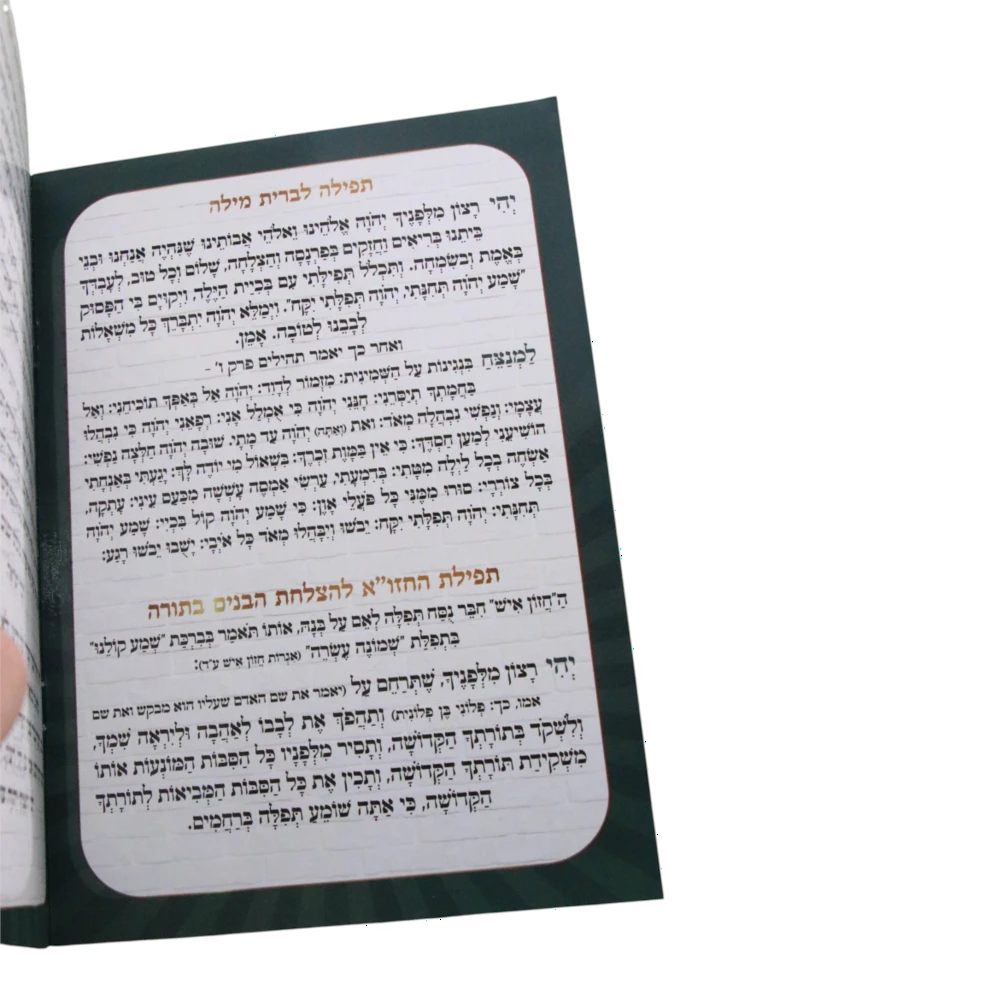 תפילה לברית מילה
יְהִי רָצוֹן מִלְּפָנֶיךָ יְהֹוָה אֱלֹהֵינוּ וֵאלֹהֵי אֲבוֹתֵינוּ שֶׁנִּהְיֶה אֲנַחְנוּ וּבְנֵי
בֵּיתֵנוּ בְּרִיאִים וַחֲזָקִים בְּפַרְנָסָה וְהַצְלָחָה, שָׁלוֹם וְכָל טוּב, לְעָבְדְּךָ
בֶּאֱמֶת וּבְשִׂמְחָה. וְתִכָּלֵל תְּפִילָּתִי עִם בְּכִיַּית הַיֶּלֶד, וִיקוּיַּם בִּי הַפָּסוּק
"שָׁמַע יְהֹוָה תְּחִנָּתִי, יְהֹוָה תְּפִלָּתִי יִקָּח". וִימַלֵּא יְהֹוָה יִתְבָּרַךְ כָּל מִשְׁאֲלוֹת
לְבָבֵנוּ לְטוֹבָה. אָמֵן.
ואחר כך יאמר תהילים פרק ו' -
לַמְנַצֵּחַ בִּנְגִינוֹת עַל הַשְּׁמִינִית: מִזְמוֹר לְדָוִד: יְהֹוָה אַל בְּאַפְּךָ תוֹכִיחֵנִי: וְאַל
בַּחֲמָתְךָ תְיַסְּרֵנִי: חָנֵּנִי יְהֹוָה כִּי אֻמְלַל אָנִי: רְפָאֵנִי יְהֹוָה כִּי נִבְהֲלוּ
עֲצָמָי: וְנַפְשִׁי נִבְהֲלָה מְאֹד: וְאַת (וְאַתָּה) יְהֹוָה עַד מָתָי. שׁוּבָה יְהֹוָה חַלְּצָה נַפְשִׁי:
הוֹשִׁיעֵנִי לְמַעַן חַסְדֶּךָ: כִּי אֵין בַּמָּוֶת זִכְרֶךָ: בִּשְׁאוֹל מִי יוֹדֶה לָּךְ: יָגַעְתִּי בְּאַנְחָתִי
אַשְׂחֶה בְכָל לַיְלָה מִטָּתִי: בְּדִמְעָתִי, עַרְשִׂי אַמְסֶה עָשְׁשָׁה מִכַּעַס עֵינִי: עָתְקָה,
בְּכָל צוֹרְרָי: סוּרוּ מִמֶּנִּי כָּל פֹּעֲלֵי אָוֶן: כִּי שָׁמַע יְהֹוָה קוֹל בִּכְיִי: שָׁמַע יְהֹוָה
תְּחִנָּתִי: יְהֹוָה תְּפִלָּתִי יִקָּח: יֵבֹשׁוּ וְיִבָּהֲלוּ מְאֹד כָּל אֹיְבָי: יָשֻׁבוּ יֵבֹשׁוּ רָגַע:
תפילת החזו"א להצלחת הבנים בתורה
הַ"חֲזוֹן אִישׁ" חִבֵּר נֻסַּח תְּפִלָּה לְאֵם עַל בְּנָהּ, אוֹתוֹ תֹּאמַר בְּבִרְכַּת "שְׁמַע קוֹלֵנוּ"
בִּתְפִלַּת "שְׁמוֹנֶה עֶשְׂרֵה" (אִגְּרוֹת חֲזוֹן אִישׁ ע"ד):
יְהִי רָצוֹן מִלְּפָנֶיךָ, שֶׁתְּרַחֵם עַל (יאמר את שם האדם שעליו הוא מבקש ואת שם
אמו, כך: פְּלוֹנִי בֶּן פְּלוֹנִית) וְתַהֲפֹךְ אֶת לְבָבוֹ לְאַהֲבָה וּלְיִרְאָה שְׁמֶךָ,
וְלִשְׁקֹד בְּתוֹרָתְךָ הַקְּדוֹשָׁה, וְתָסִיר מִלְּפָנָיו כָּל הַסִּבּוֹת הַמּוֹנְעוֹת אוֹתוֹ
מִשְּׁקִידַת תּוֹרָתְךָ הַקְּדוֹשָׁה, וְתָכִין אֶת כָּל הַסִּבּוֹת הַמְּבִיאוֹת לְתוֹרָתְךָ
הַקְּדוֹשָׁה, כִּי אַתָּה שׁוֹמֵעַ תְּפִלָּה בְּרַחֲמִים.